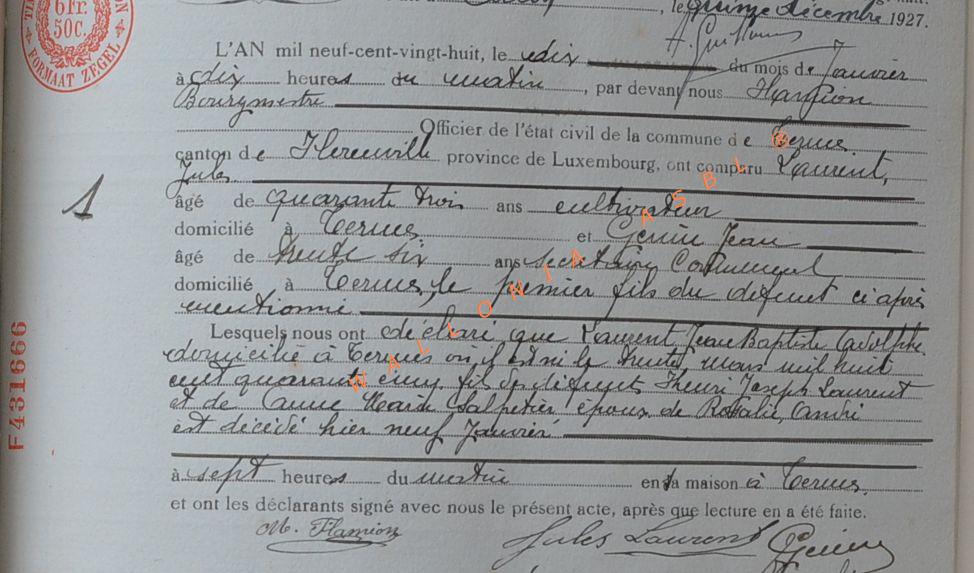 6Fr.
50C.
FORMAAT ZEGEL
, le quinze décembre 1927.
L'AN mil neuf-cent-vingt-huit, le dix du mois de Janvier
à dix heures du matin, par devant nous Hampion
Bourgmestre
Officier de l'état civil de la commune de Termes
canton de Florenville province de Luxembourg, ont comparu Laurent,
Jules
1
âgé de quarante trois ans cultivateur
domicilié à Termes et Genin Jean
âgé de trente six ans secrétaire Communal
domicilié à Termes, le premier fils du défunt ci après
mentionné
Lesquels nous ont déclaré que Laurent, Jean Baptiste Adolphe
domicilié à Termes où il est né le trente mars mil huit
cent quarante cinq fils des défunts Henri Joseph Laurent
et de Anne Marie Salpetier époux de Rosalie André
est décédé hier neuf Janvier
à sept heures du matin en sa maison à Termes
et ont les déclarants signé avec nous le présent acte, après que lecture en a été faite.
Jules Laurent Genin
F431666
WALLONIA ASBL